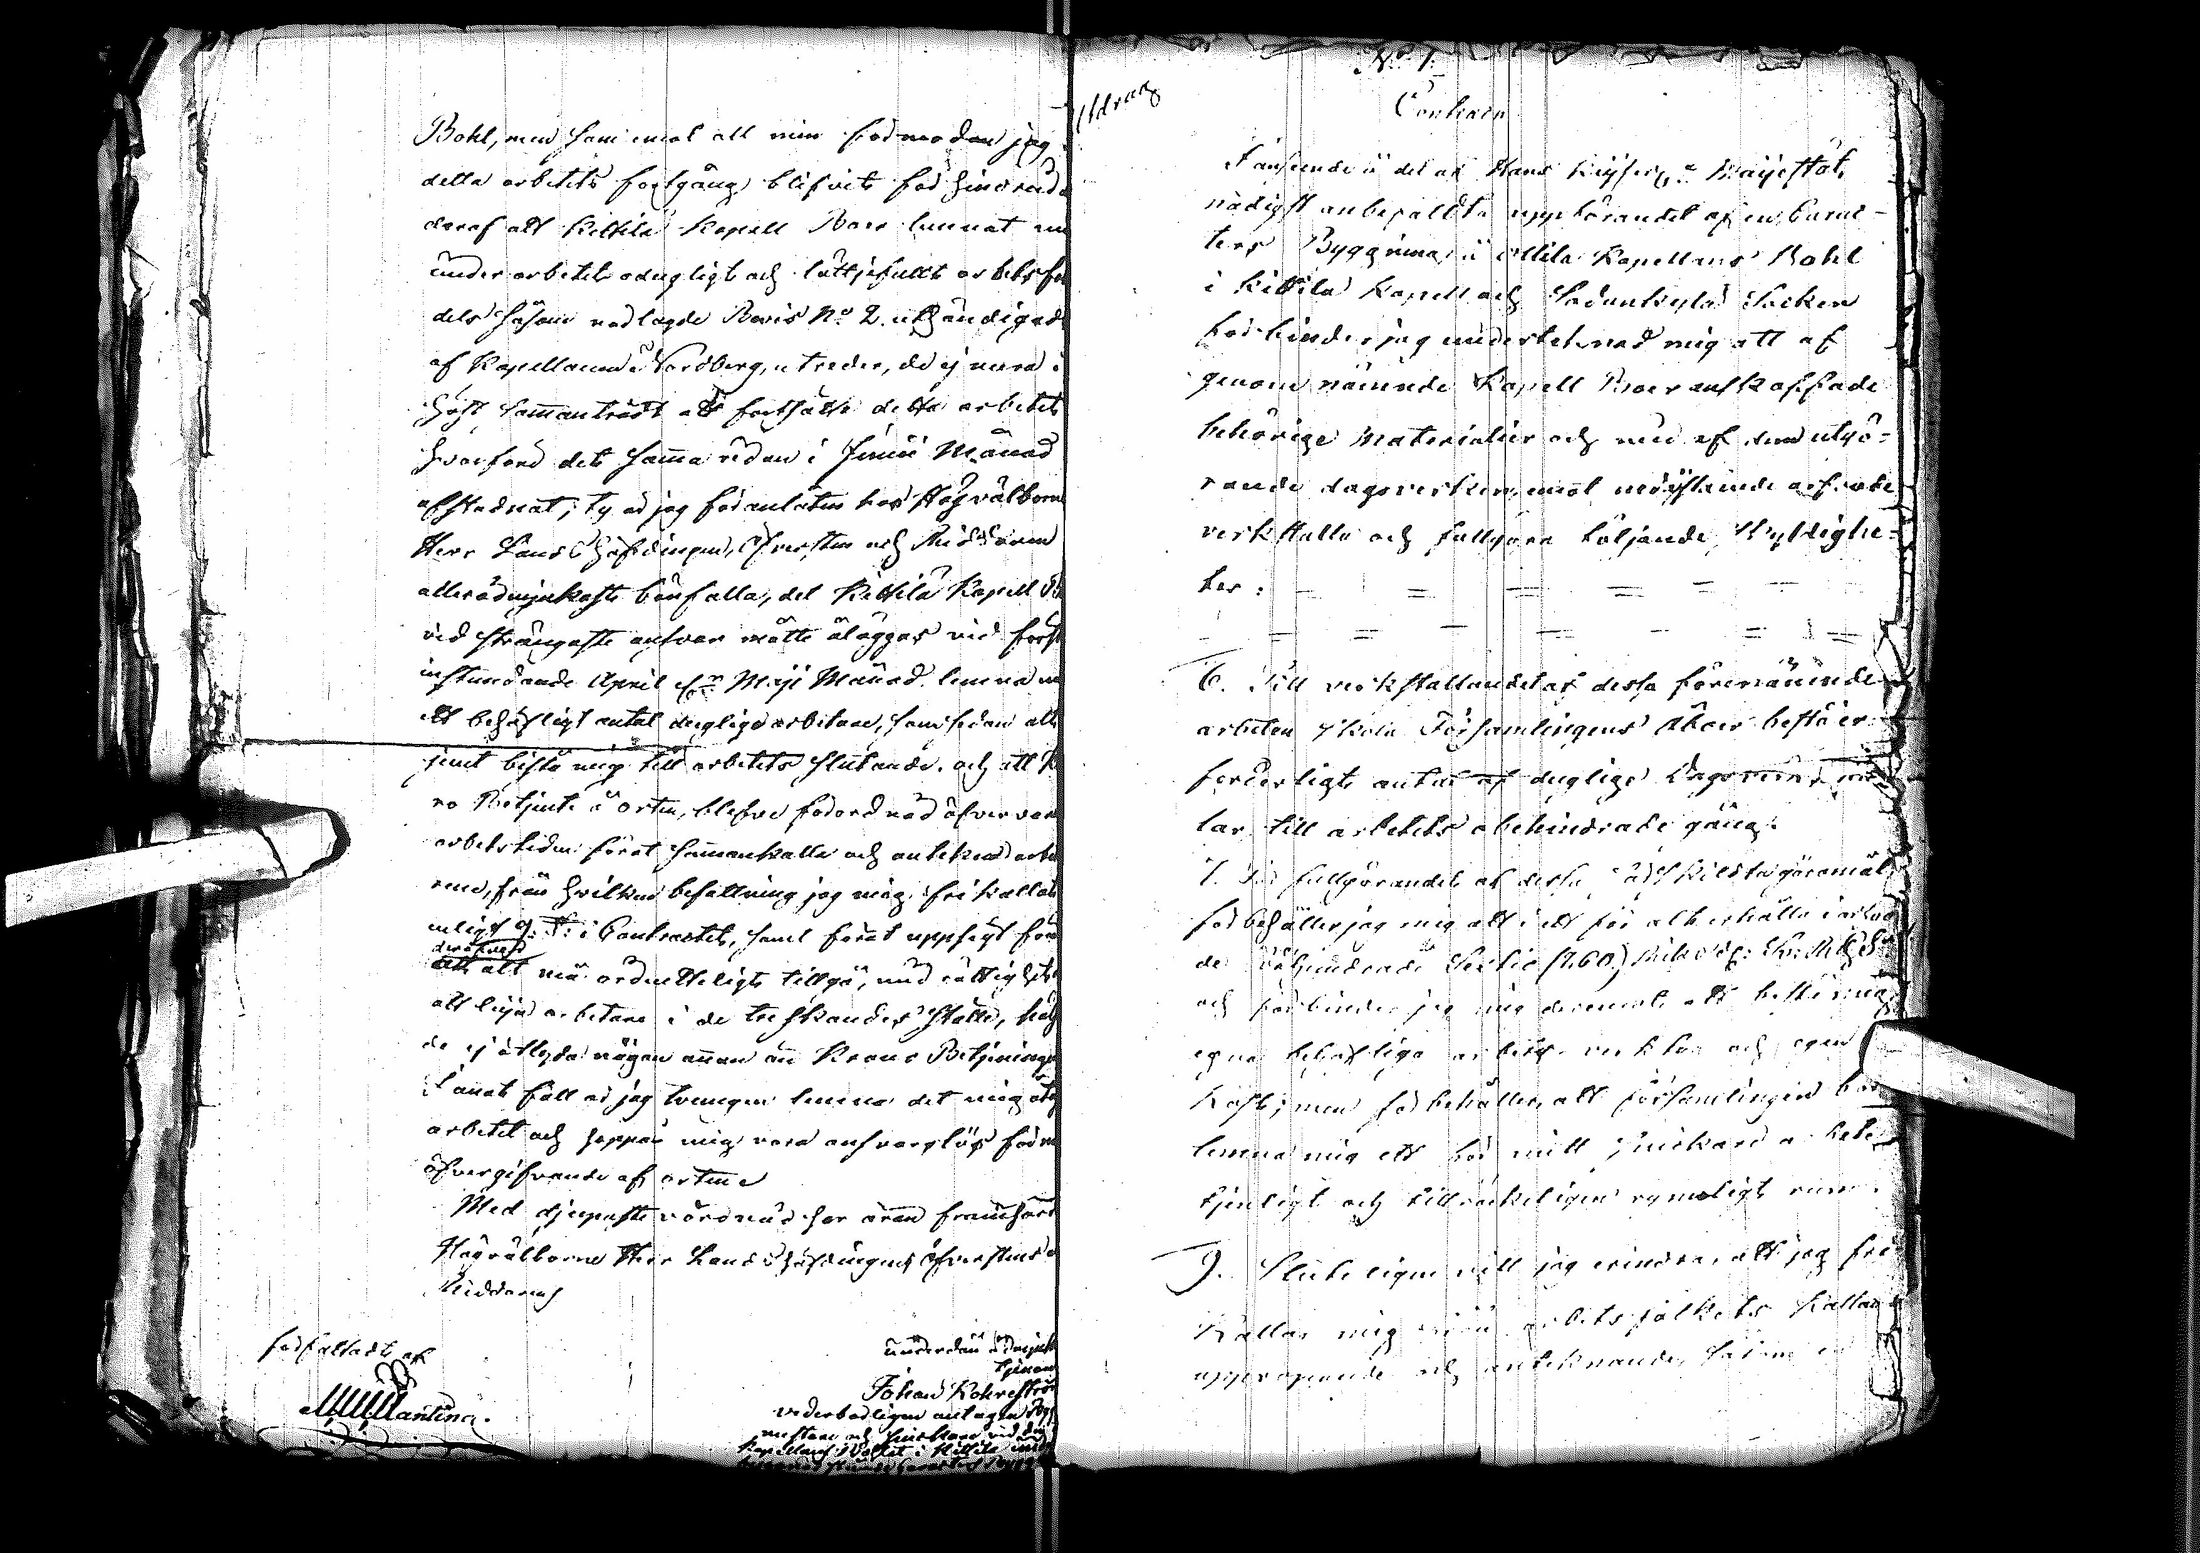 Bohl, men som emot all min förmodan jag
detta arbetets fortgång blifvit förhindrad
deraf att Kittilä Kapell Boer lemnat
under arbetet odugligt och lättjefullt arbetsfolk
dels såsom närlagde Bevis No 2. uthändigadt
af Kapellanen Nordberg, utreder, de ej mera i
höst sammanträdt att fortsätta detta arbete
hvarföre det samma redan i Junii Månad
afstadnat; ty är jag föranlåten hos Högvälborne
Herr Landshöfdingen, Öfversten och Riddaren
allerödmjukaste bönfalla, det Kittilä Kapell
vid strängaste ansvar måtte åläggas vid först
instundande April eller Maji Månad lemna
ett behöfligt antal duglige arbetare, som sedan
jemt bistå mig till arbetets slutande, och att
no Betjente å orten, blefve förordnad öfvervara
arbetstiden föråt sammankalla och antekna
rene, från hvilken befattning jag mig frikallat
enligt 9. §. i Contractet, samt föråt uppsigt
deröfver
att allt må ordentteligt tillgå, med rättighet
att leja arbetare i de treskandes ställe,
de ej åtlyda någon annan än Krono Betjening
I annat fall är jag tvungen lemna det mig
arbetet och hoppas mig vara ansvarslös för
öfvergifvande af orten
Med djupaste vördnad har äran framhärda
Högvälborne Herr Landshöfdingens öfverstens
Riddarens
underdån ödmjuke
tjenare
Johan Kohreström
vederbörligen antagen Bygg
mästare och Snickare vid
Kapellans Bolet i Kittilä
författadt af
Mantina.
Utdrag
No 1.
Contract
I anseende å det af Hans Kejserl. Majestät
nådigst anbefallte uppförandet af en Carac-
ters Byggning å Kittilä Kapellans Bohl
i Kittilä Kapell och Sodankylä Socken
förbinder jag undertecknad mig att af
genom nämnde Kapell Boer anskaffade
behörige Materialier och med af dem utgö-
rande dagsverken, emot nedanstående
verkställa och fullgöra följande skyldighe-
ter:
6. Till verkställandet af dessa förenämnde
arbeten skola Församlingens Åboer bestå er
forderligt antal af duglige Dagsverks
lar till arbetets obehindrade gång.
7. För fullgörandet af dessa särskilta göromål
förbehåller jag mig att i ett för allt erhålla i
de Sextio (160.)
och förbinder jag mig deremot att bestå mig
egne behöflige arbets verktyg och egen
Kost; men förbehåller, att församlingen bör
lemna mig ett för mitt Snickare arbete
tjenligt och tillräckeligen rymeligt rum.
9. Slutligen vill jag erindra, att jag fri
kallar mig från arbetsfolkets kallande
uppropande och anteknande, såsom